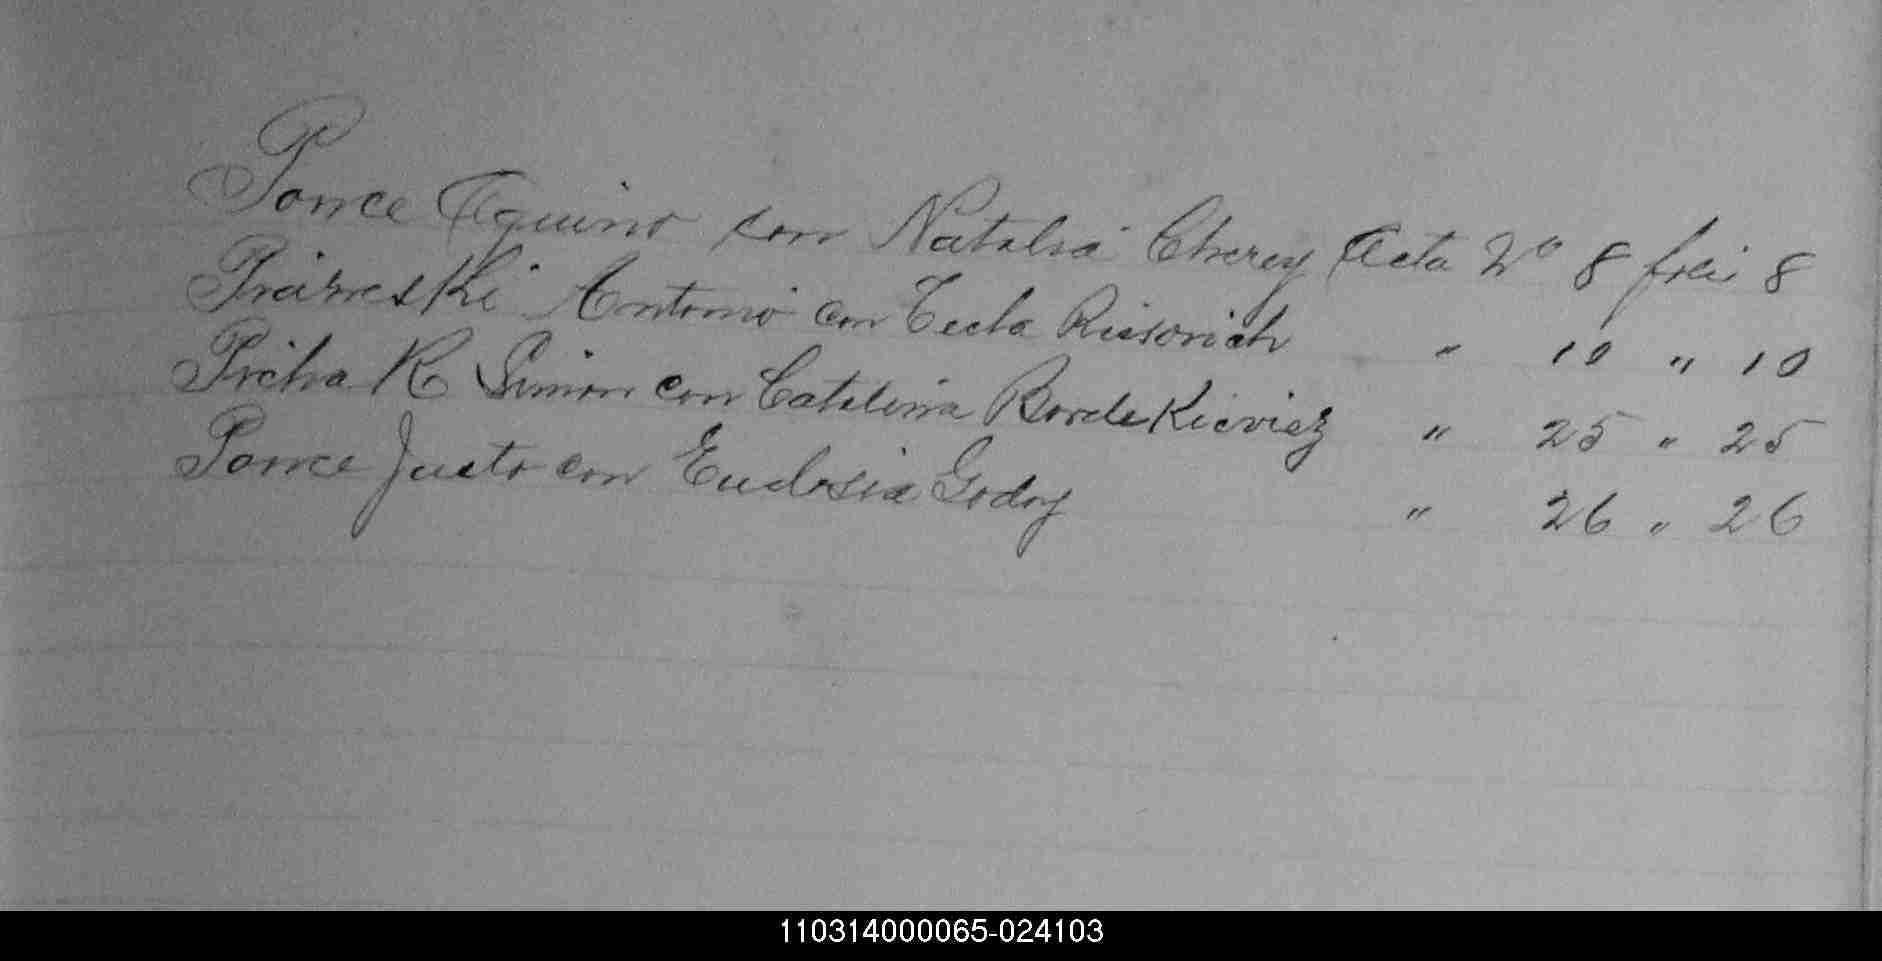 Ponce Aquino con Natalia Cherey Acta Nº 8 folio 8
Antonio con Tecla " 10 " 10
Pricha R Simon con Catalina " 25 " 25
Ponce Justo con Eudosia Godoy " 26 " 26
110314000065-024103